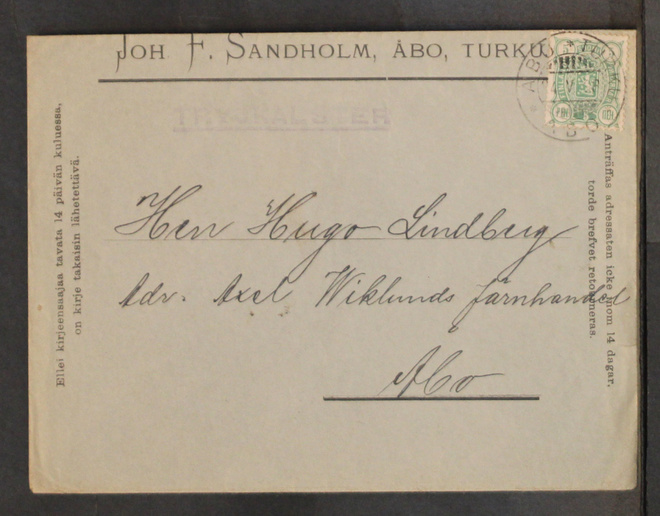 JOH F. SANDHOLM, ÅBO, TURKU
TRYCKALSTER
Herr Hugo Lindberg
Adr. Axel Wiklunds Järnhandel
Åbo
Ellei kirjeensaajaa tavata 14 päivän kuluessa,
on kirje takaisin lähetettävä.
Anträffas adressaten icke inom 14 dagar,
torde brefvet retourneras.